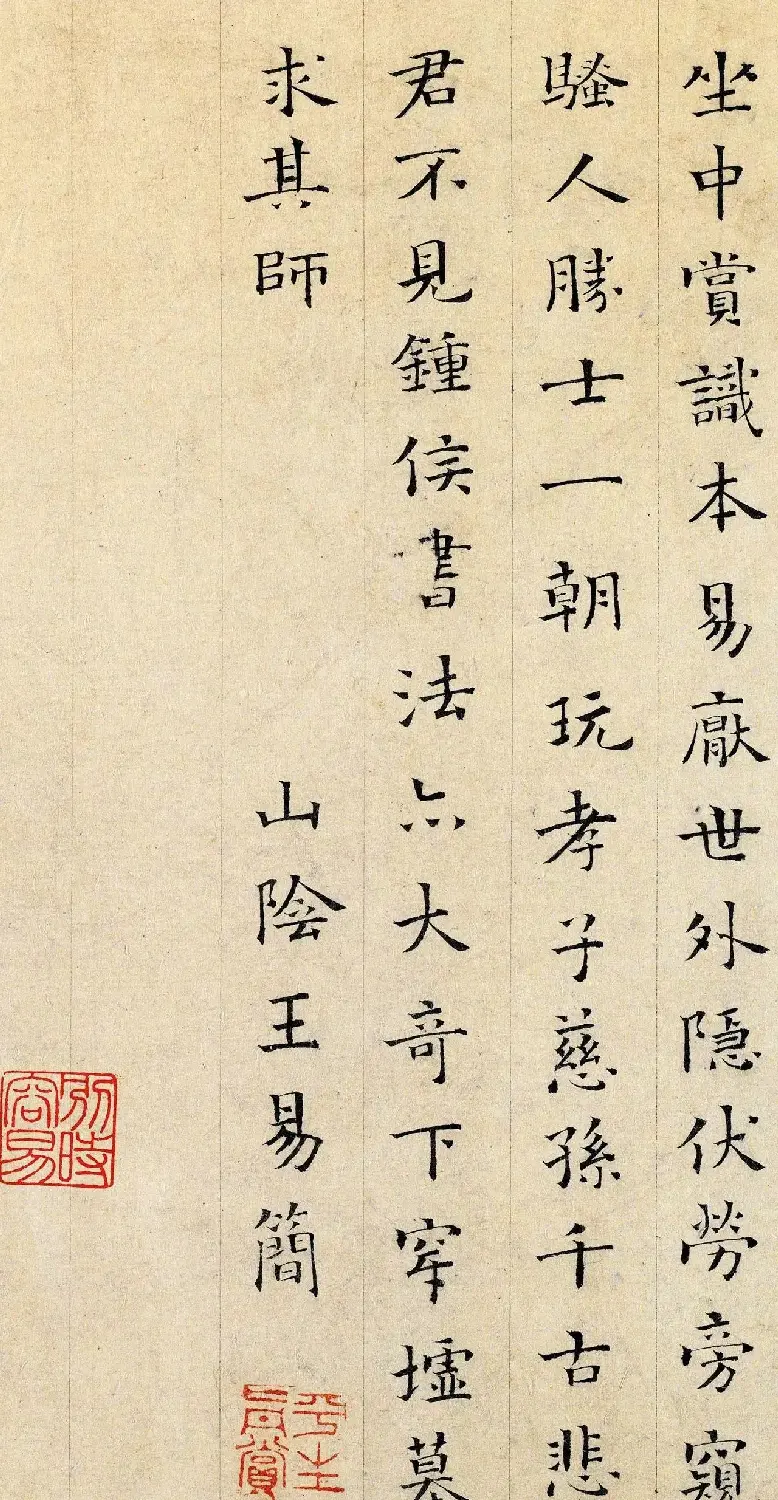 坐中賞識本易厭世外隱伏勞旁窺
騷人勝士一朝玩孝子慈孫千古悲
君不見鍾侯書法亦大奇下穿壚墓
求其師
山陰王易簡
平生真賞
別時容易